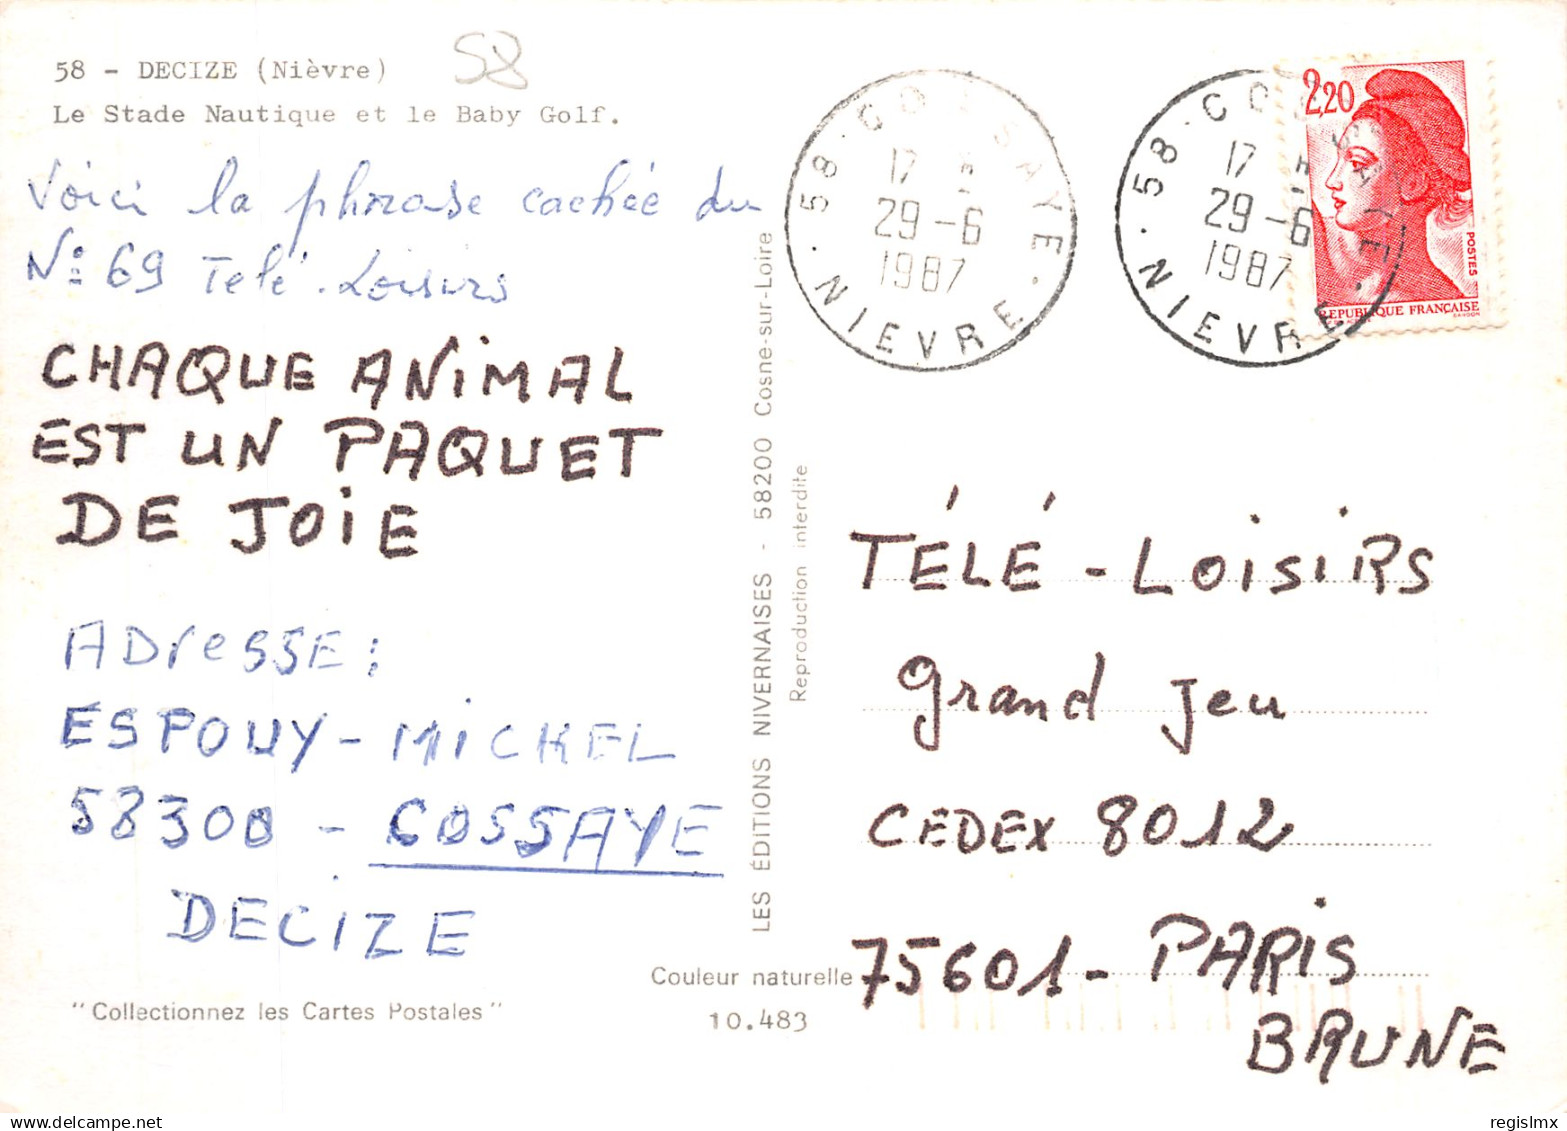 58 - DECIZE (Nièvre)
58
Le Stade Nautique et le Baby Golf.
Voici la phrase cachée du
N° 69 Télé-Loisirs
CHAQUE ANiMAL
EST UN PAQUET
DE JOiE
ADresSE :
ESPOUY - MiCHEL
58300 - COSSAYE
DECiZE
"Collectionnez les Cartes Postales"
Couleur naturelle
10.483
LES ÉDITIONS NIVERNAISES - 58200 Cosne-sur-Loire
Reproduction interdite
58 - COSSAYE
17
29-6
1987
NIEVRE
58 - COSSAYE
17
29-6
1987
NIEVRE
2,20
POSTES
REPUBLIQUE FRANÇAISE
TÉLÉ - LOiSiRS
grand Jeu
CEDEX 8012
75601 - PARiS
BRUNE
regislmx